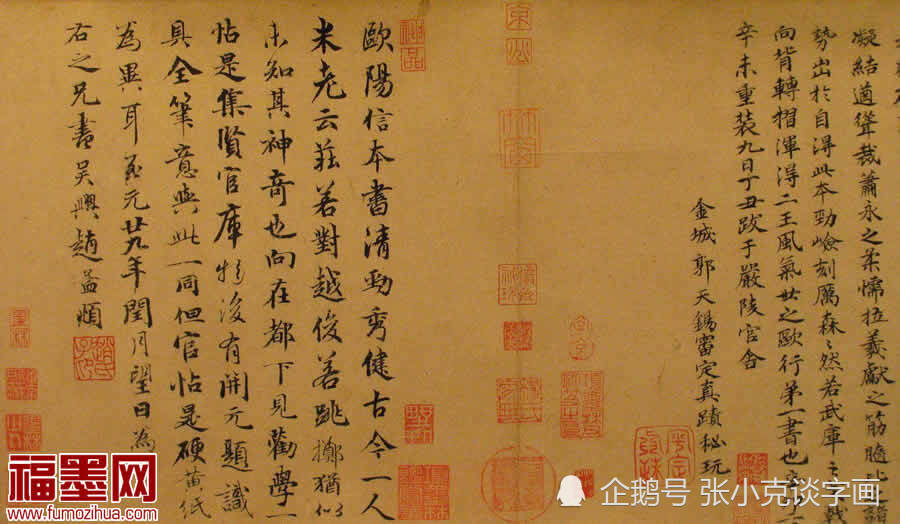 凝結遒聳裁蕭永之柔懦拉羲獻之筋髓比之諸
勢出於自得此本勁嶮刻厲森〻然若武庫之戟
向背轉摺渾得二王風氣世之歐行第一書也
辛未重裝九日丁丑跋于嚴陵官舍
金城郭天錫審定真蹟秘玩
神品
歐陽信本書清勁秀健古今一人
米老云莊若對越俊若跳擲猶似
未知其神奇也向在都下見勸學一
帖是集賢官庫物後有開元題識
具全筆意與此一同但官帖是硬黃紙
為異耳至元廿九年閏月望日為
右之兄書吳興趙孟頫
福墨网
www.fumozihua.com
企鹅号 张小克谈字画